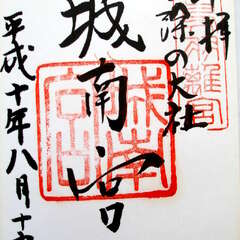 拝
離宮
除の大社
城南宮
城南宮印
平成十年八月十